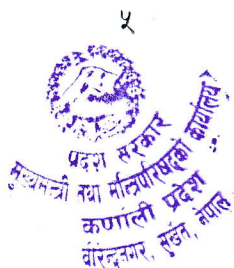 ५
प्रदेश सरकार
मुख्यमन्त्री तथा मन्त्रिपरिषद्को कार्यालय
कर्णाली प्रदेश
वीरेन्द्रनगर, सुर्खेत, नेपाल